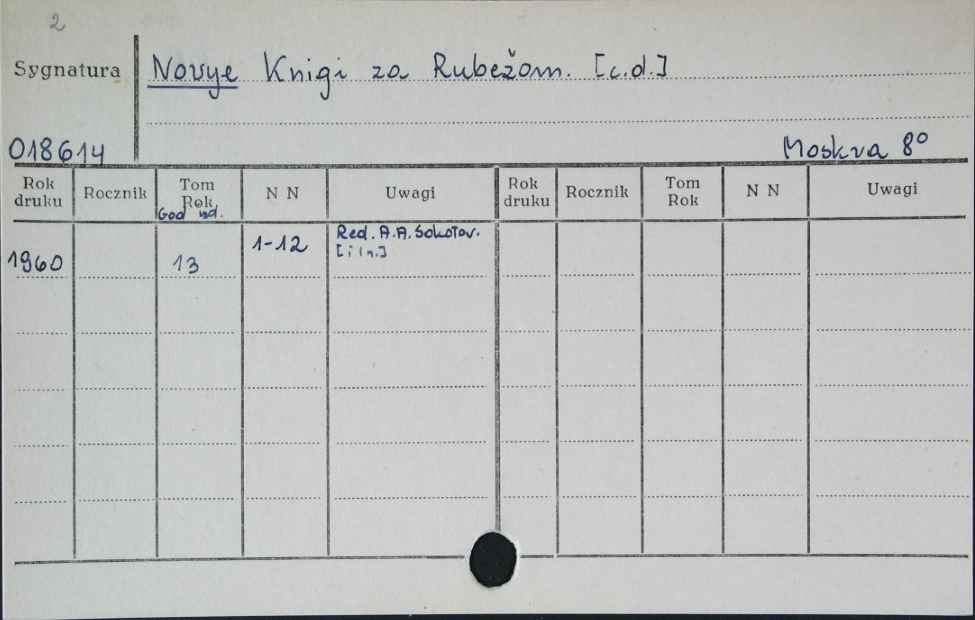 2
Sygnatura
Novye Knigi za Rubežom. [c.d.]
018614
Moskva 8°
Rok druku Rocznik Tom Rok N N Uwagi Rok druku Rocznik Tom Rok N N Uwagi
God izd.
1960 13 1-12 Red. A.A. Sokolov.
[i in.]